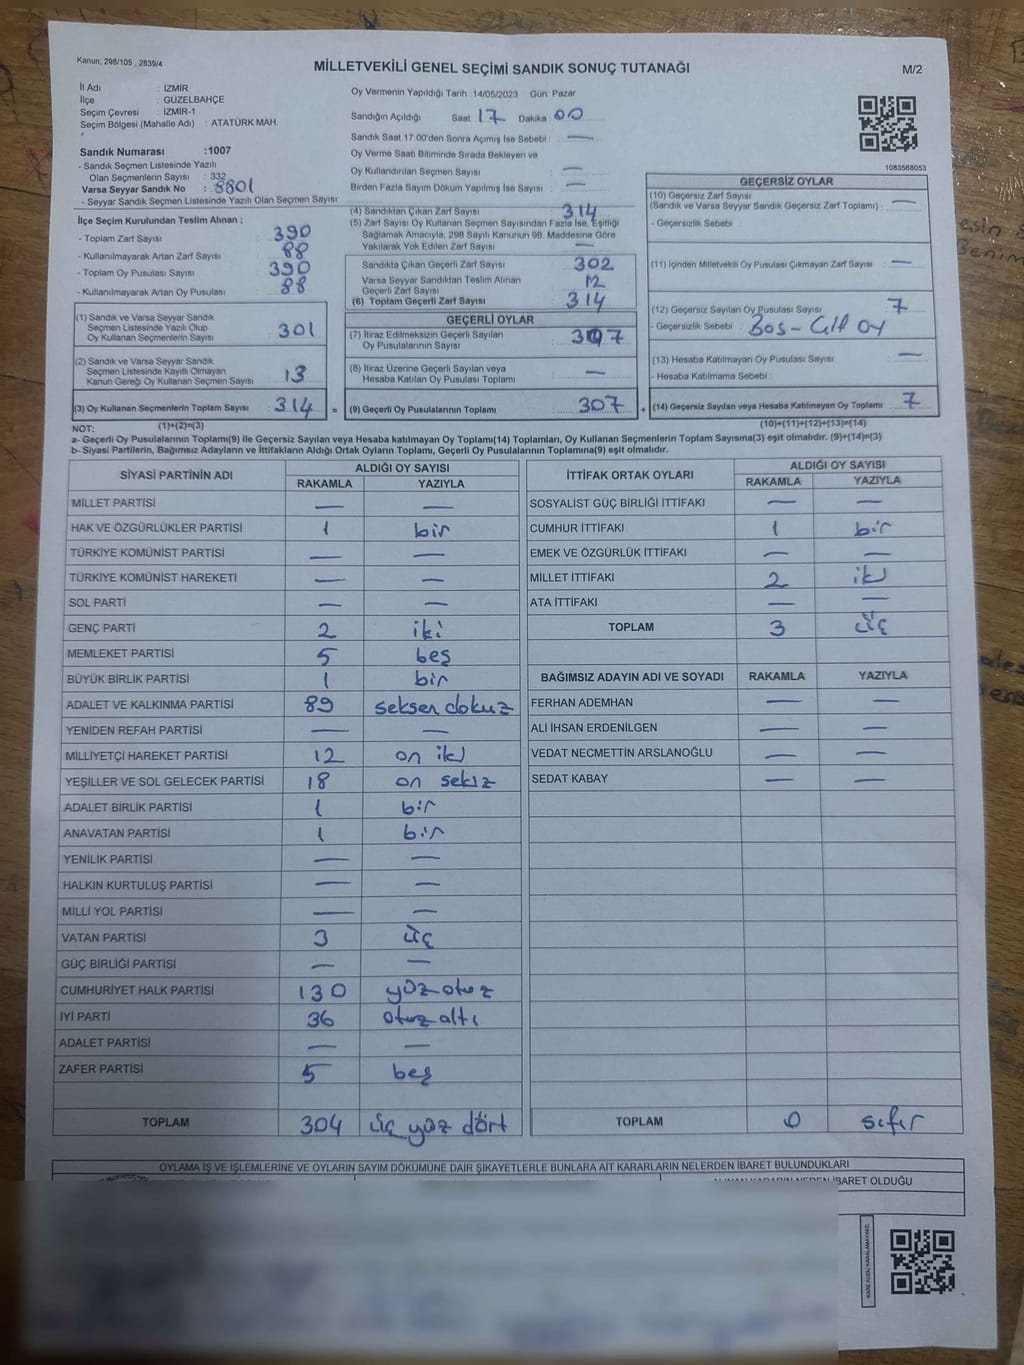 Kanun; 298/105 , 2839/4
MİLLETVEKİLİ GENEL SEÇİMİ SANDIK SONUÇ TUTANAĞI
M/2
İl Adı : İZMİR
İlçe : GÜZELBAHÇE
Seçim Çevresi : İZMİR-1
Seçim Bölgesi (Mahalle Adı) : ATATÜRK MAH.
Sandık Numarası :1007
- Sandık Seçmen Listesinde Yazılı
Olan Seçmenlerin Sayısı : 332
Varsa Seyyar Sandık No : 8801
- Seyyar Sandık Seçmen Listesinde Yazılı Olan Seçmen Sayısı:
İlçe Seçim Kurulundan Teslim Alınan ;
- Toplam Zarf Sayısı 390
- Kullanılmayarak Artan Zarf Sayısı 88
- Toplam Oy Pusulası Sayısı 390
- Kullanılmayarak Artan Oy Pusulası 88
(1) Sandık ve Varsa Seyyar Sandık
Seçmen Listesinde Yazılı Olup
Oy Kullanan Seçmenlerin Sayısı 301
(2) Sandık ve Varsa Seyyar Sandık
Seçmen Listesinde Kayıtlı Olmayan
Kanun Gereği Oy Kullanan Seçmen Sayısı 13
(3) Oy Kullanan Seçmenlerin Toplam Sayısı 314 =
(1)+(2)=(3)
Oy Vermenin Yapıldığı Tarih :14/05/2023 Gün: Pazar
Sandığın Açıldığı Saat: 17 Dakika: 00
Sandık Saat 17:00'den Sonra Açımış İse Sebebi : —
Oy Verme Saati Bitiminde Sırada Bekleyen ve
Oy Kullandırılan Seçmen Sayısı : —
Birden Fazla Sayım Döküm Yapılmış İse Sayısı : —
(4) Sandıktan Çıkan Zarf Sayısı 314
(5) Zarf Sayısı Oy Kullanan Seçmen Sayısından Fazla İse, Eşitliği
Sağlamak Amacıyla, 298 Sayılı Kanunun 98. Maddesine Göre
Yakılarak Yok Edilen Zarf Sayısı —
Sandıkta Çıkan Geçerli Zarf Sayısı 302
Varsa Seyyar Sandıktan Teslim Alınan
Geçerli Zarf Sayısı 12
(6) Toplam Geçerli Zarf Sayısı 314
GEÇERLİ OYLAR
(7) İtiraz Edilmeksizin Geçerli Sayılan
Oy Pusulalarının Sayısı 307
(8) İtiraz Üzerine Geçerli Sayılan veya
Hesaba Katılan Oy Pusulası Toplamı —
(9) Geçerli Oy Pusulalarının Toplamı 307 +
1083568053
GEÇERSİZ OYLAR
(10) Geçersiz Zarf Sayısı
(Sandık ve Varsa Seyyar Sandık Geçersiz Zarf Toplamı) : —
- Geçersizlik Sebebi :
(11) İçinden Milletvekili Oy Pusulası Çıkmayan Zarf Sayısı : —
(12) Geçersiz Sayılan Oy Pusulası Sayısı : 7
- Geçersizlik Sebebi : Boş - Çift oy
(13) Hesaba Katılmayan Oy Pusulası Sayısı : —
- Hesaba Katılmama Sebebi :
(14) Geçersiz Sayılan veya Hesaba Katılmayan Oy Toplamı : 7
(10)+(11)+(12)+(13)=(14)
NOT:
a- Geçerli Oy Pusulalarının Toplamı(9) ile Geçersiz Sayılan veya Hesaba katılmayan Oy Toplamı(14) Toplamları, Oy Kullanan Seçmenlerin Toplam Sayısına(3) eşit olmalıdır. (9)+(14)=(3)
b- Siyasi Partilerin, Bağımsız Adayların ve İttifakların Aldığı Ortak Oyların Toplamı, Geçerli Oy Pusulalarının Toplamına(9) eşit olmalıdır.
SİYASİ PARTİNİN ADI ALDIĞI OY SAYISI
RAKAMLA YAZIYLA
MİLLET PARTİSİ — —
HAK VE ÖZGÜRLÜKLER PARTİSİ 1 bir
TÜRKİYE KOMÜNİST PARTİSİ — —
TÜRKİYE KOMÜNİST HAREKETİ — —
SOL PARTİ — —
GENÇ PARTİ 2 iki
MEMLEKET PARTİSİ 5 beş
BÜYÜK BİRLİK PARTİSİ 1 bir
ADALET VE KALKINMA PARTİSİ 89 seksen dokuz
YENİDEN REFAH PARTİSİ — —
MİLLİYETÇİ HAREKET PARTİSİ 12 on iki
YEŞİLLER VE SOL GELECEK PARTİSİ 18 on sekiz
ADALET BİRLİK PARTİSİ 1 bir
ANAVATAN PARTİSİ 1 bir
YENİLİK PARTİSİ — —
HALKIN KURTULUŞ PARTİSİ — —
MİLLİ YOL PARTİSİ — —
VATAN PARTİSİ 3 üç
GÜÇ BİRLİĞİ PARTİSİ — —
CUMHURİYET HALK PARTİSİ 130 yüz otuz
İYİ PARTİ 36 otuz altı
ADALET PARTİSİ — —
ZAFER PARTİSİ 5 beş
TOPLAM 304 üç yüz dört
İTTİFAK ORTAK OYLARI ALDIĞI OY SAYISI
RAKAMLA YAZIYLA
SOSYALİST GÜÇ BİRLİĞİ İTTİFAKI — —
CUMHUR İTTİFAKI 1 bir
EMEK VE ÖZGÜRLÜK İTTİFAKI — —
MİLLET İTTİFAKI 2 iki
ATA İTTİFAKI — —
TOPLAM 3 üç
BAĞIMSIZ ADAYIN ADI VE SOYADI RAKAMLA YAZIYLA
FERHAN ADEMHAN — —
ALİ İHSAN ERDENİLGEN — —
VEDAT NECMETTİN ARSLANOĞLU — —
SEDAT KABAY — —
TOPLAM 0 sıfır
OYLAMA İŞ VE İŞLEMLERİNE VE OYLARIN SAYIM DÖKÜMÜNE DAİR ŞİKAYETLERLE BUNLARA AİT KARARLARIN NELERDEN İBARET BULUNDUKLARI
ALINAN KARARIN NEDEN İBARET OLDUĞU